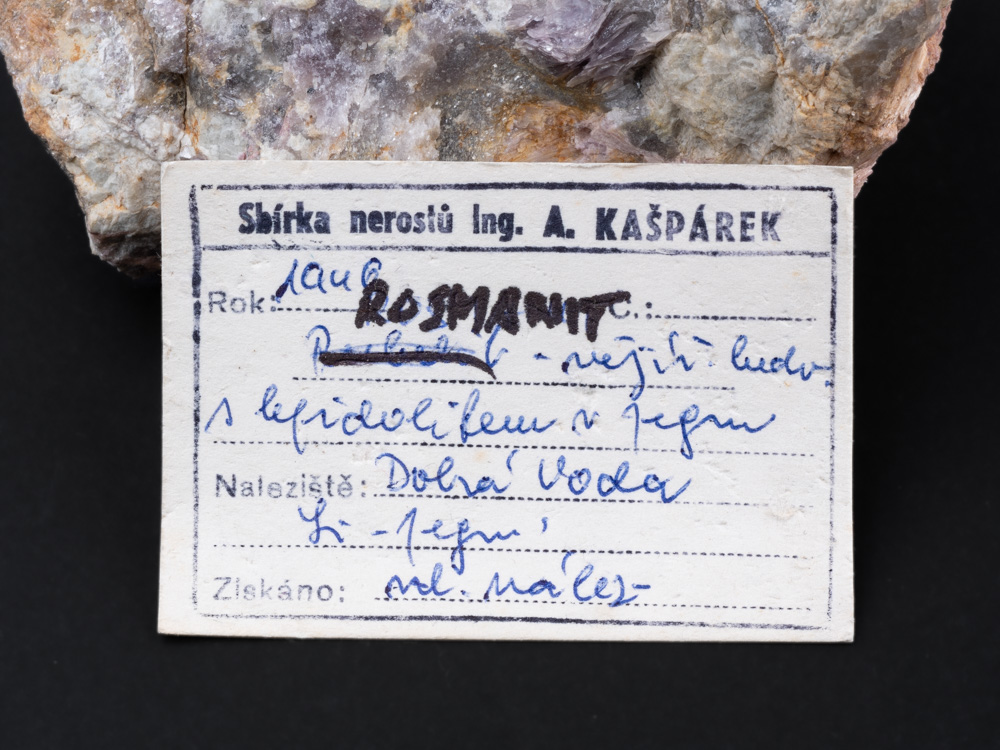 Sbírka nerostů Ing. A. KAŠPÁREK
Rok: ROSMANIT Č.:
- vějíř.
s lepidolitem v pegm
Naleziště: Dobrá Voda
Li - pegm.
Získáno: vl. nález